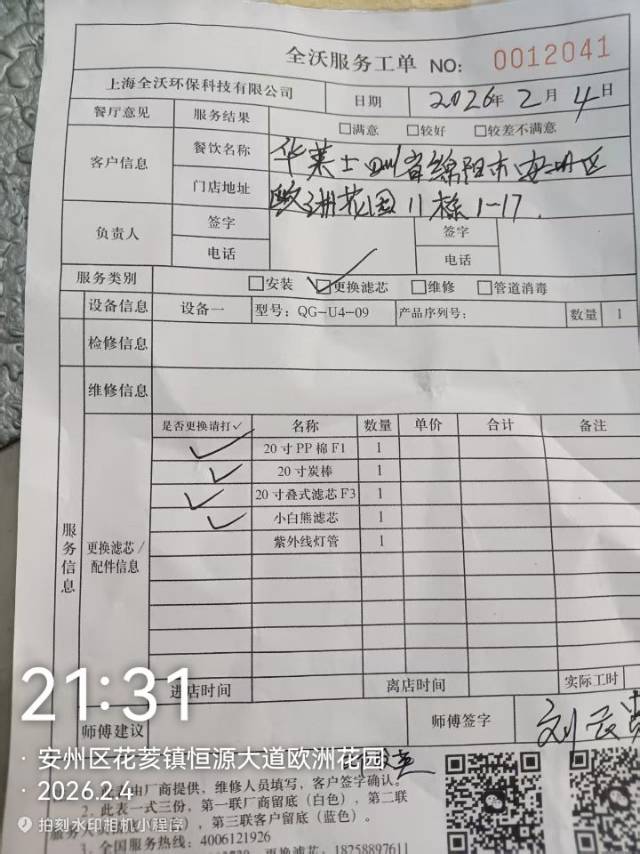 全沃服务工单 NO: 0012041
上海全沃环保科技有限公司 日期 2026年 2月 4日
餐厅意见 服务结果 □满意 □较好 □较差不满意
客户信息 餐饮名称 华莱士四川省绵阳市安州区
门店地址 欧洲花园11栋1-17.
负责人 签字 签字
电话 电话
服务类别 □安装 ☑更换滤芯 □维修 □管道消毒
设备信息 设备一 型号: QG-U4-09 产品序列号: 数量 1
检修信息
维修信息
服务信息
更换滤芯/
配件信息
是否更换请打✓ 名称 数量 单价 合计 备注
✓ 20寸PP棉F1 1
✓ 20寸炭棒 1
✓ 20寸叠式滤芯F3 1
✓ 小白熊滤芯 1
紫外线灯管 1
进店时间 离店时间 实际工时
师傅建议 师傅签字 刘
21:31
· 安州区花荄镇恒源大道欧洲花园
· 2026.2.4
由厂商提供，维修人员填写，客户签字确认。
2，此表一式三份，第一联厂商留底（白色），第二联
服务人 ），第三联客户留底（蓝色）。
拍刻水印相机小程序
3，全国服务热线：4006121926
更换滤芯：18758897611